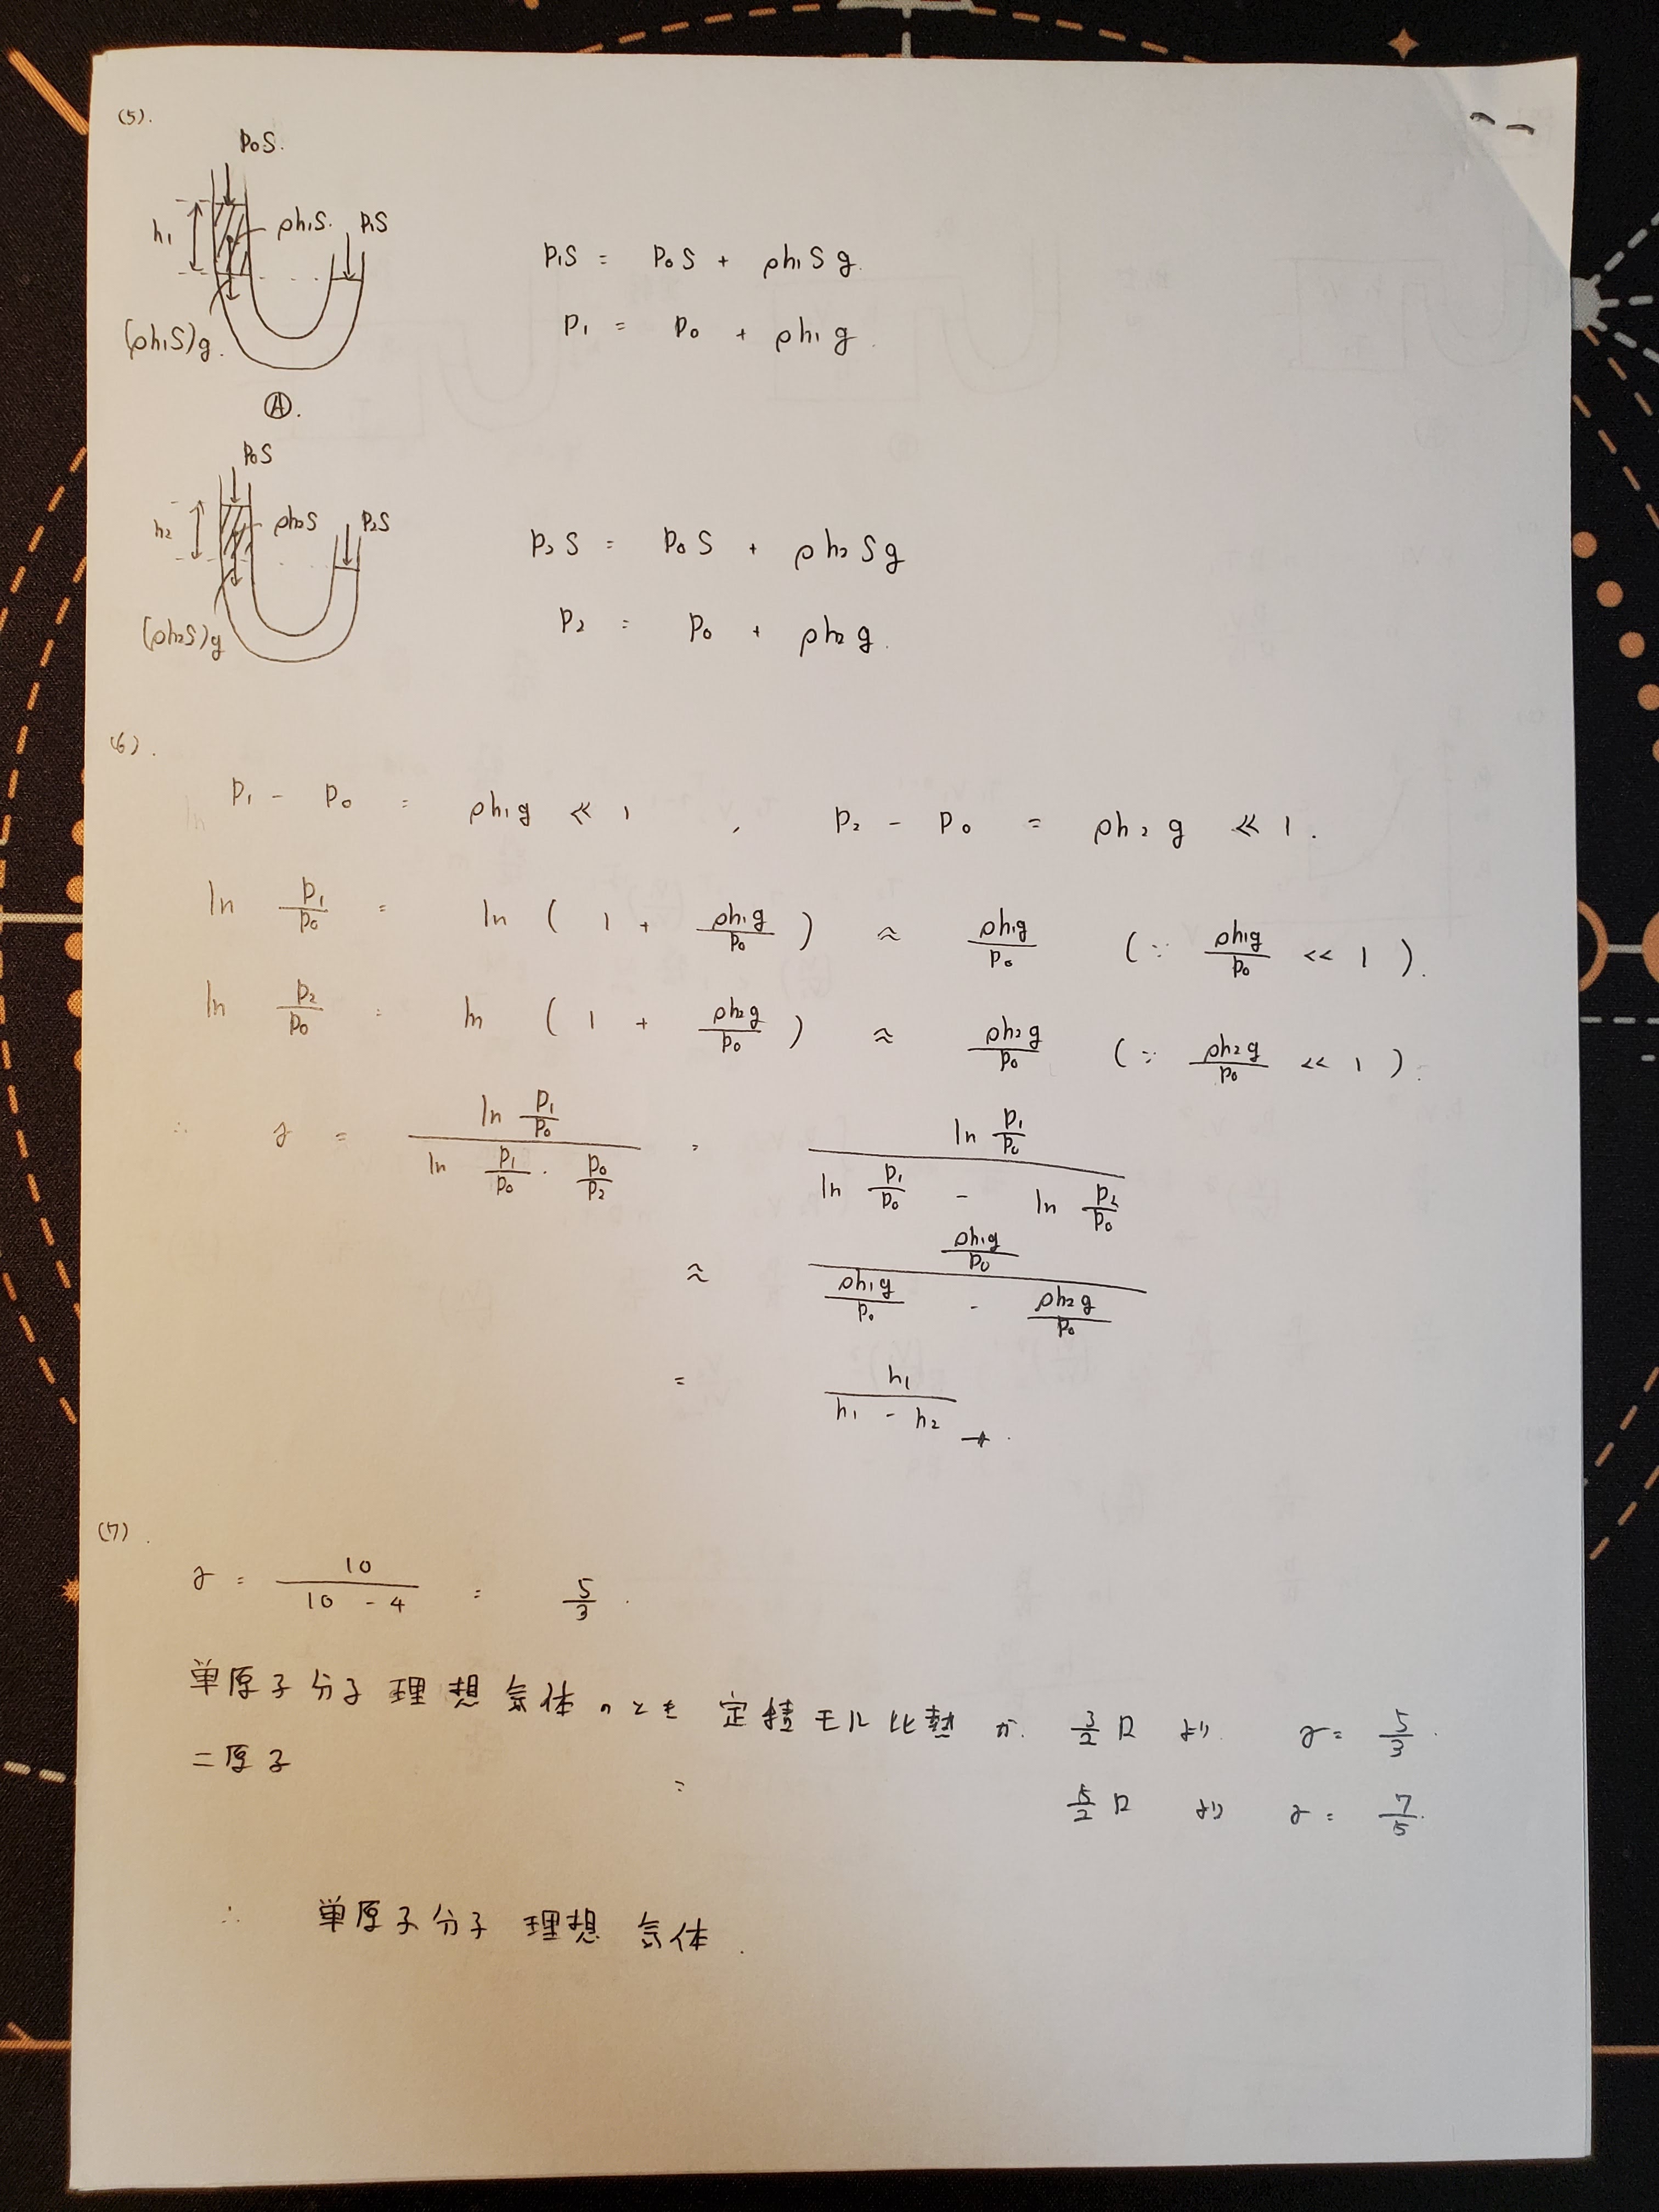 (5).
P₀S.
h₁ ρh₁S. P₁S
(ρh₁S)g.
Ⓐ.
P₁S = P₀S + ρh₁Sg.
P₁ = P₀ + ρh₁g.
P₀S
h₂ ρh₂S P₂S
(ρh₂S)g
P₂S = P₀S + ρh₂Sg
P₂ = P₀ + ρh₂g.
(6).
P₁ - P₀ = ρh₁g ≪ 1 , P₂ - P₀ = ρh₂g ≪ 1.
ln P₁/P₀ = ln (1 + ρh₁g/P₀) ≈ ρh₁g/P₀ (∵ ρh₁g/P₀ << 1).
ln P₂/P₀ = ln (1 + ρh₂g/P₀) ≈ ρh₂g/P₀ (∵ ρh₂g/P₀ << 1).
∴ γ = (ln P₁/P₀)/(ln P₁/P₀ · P₀/P₂) = (ln P₁/P₀)/(ln P₁/P₀ - ln P₂/P₀)
≈ (ρh₁g/P₀)/(ρh₁g/P₀ - ρh₂g/P₀)
= h₁/(h₁ - h₂)
(7).
γ = 10/(10 - 4) = 5/3.
単原子分子理想気体のとき 定積モル比熱が 3/2 R より γ = 5/3.
二原子 〃 5/2 R より γ = 7/5.
∴ 単原子分子理想気体.